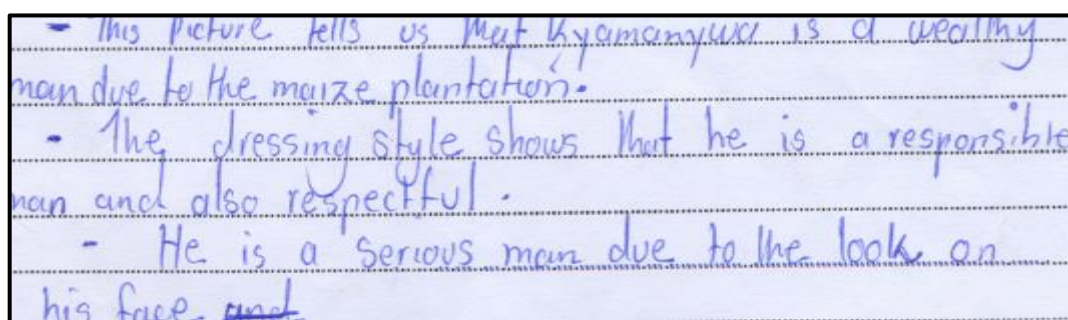 - This Picture tells us that Kyamanywa is a wealthy
man due to the maize plantation.
- The dressing style shows that he is a responsible
man and also respectful.
- He is a serious man due to the look on
his face and